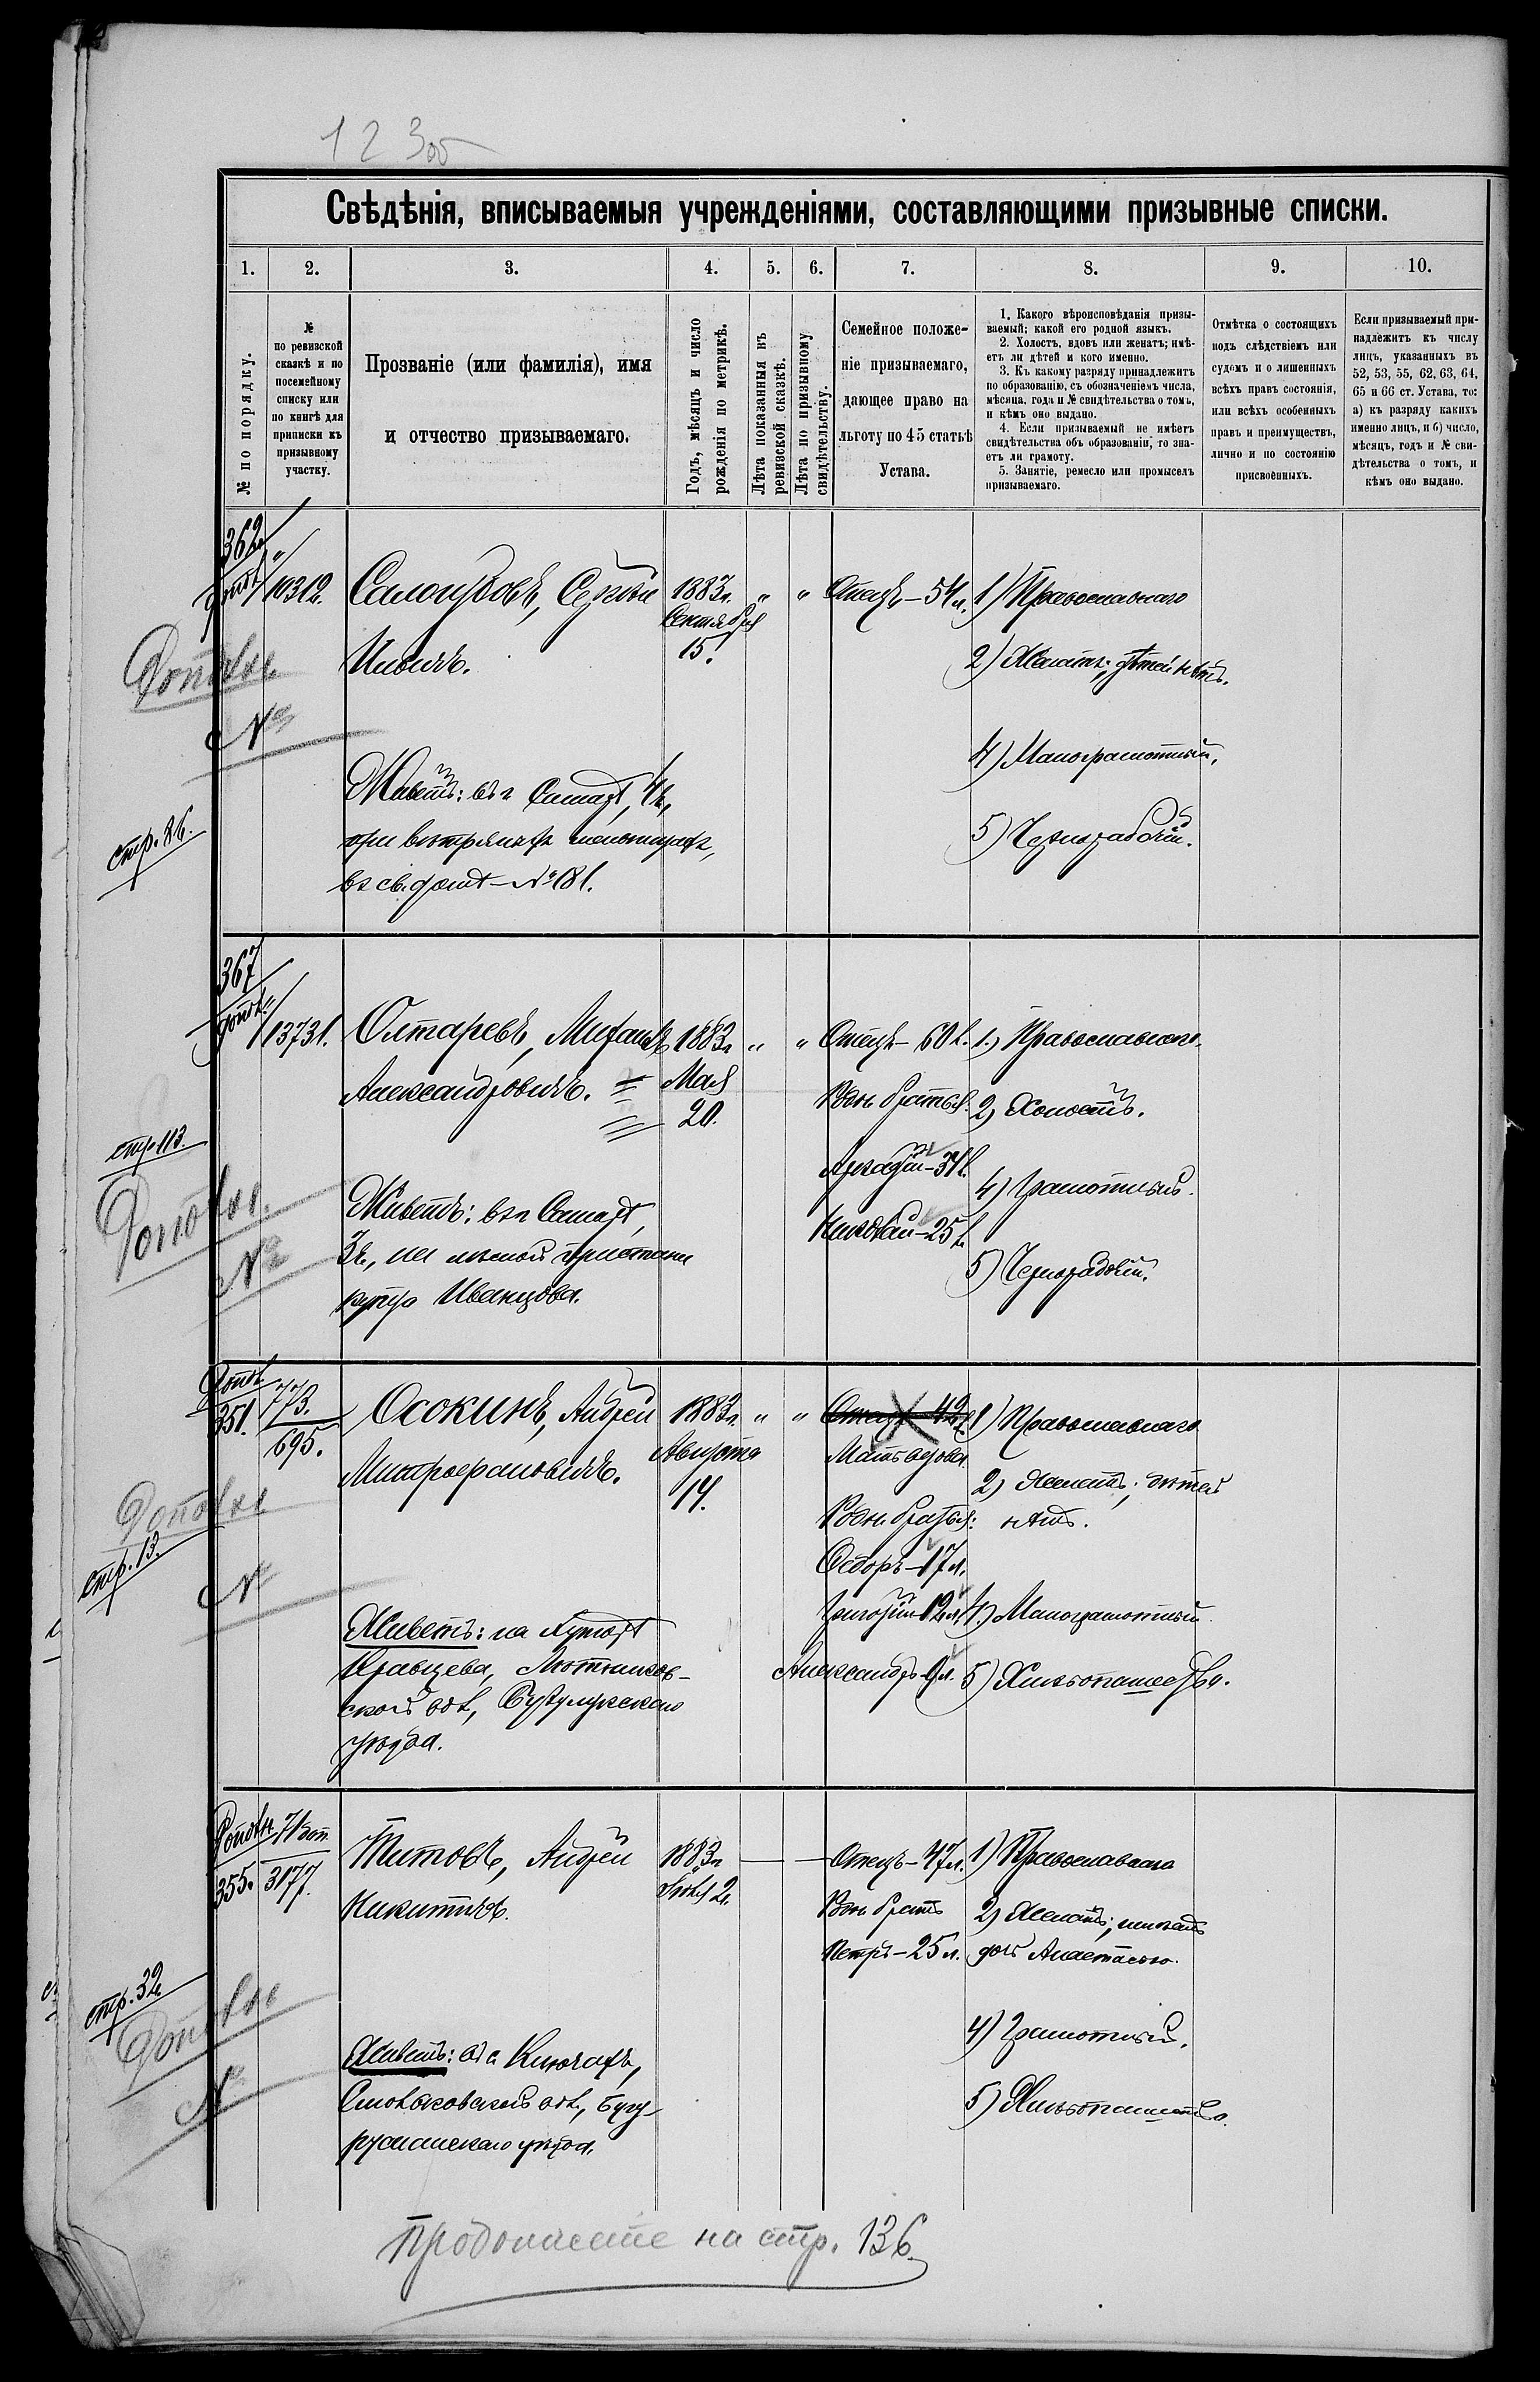 123об
Свѣдѣнія, вписываемыя учрежденіями, составляющими призывные списки.
1. 2. 3. 4. 5. 6. 7. 8. 9. 10.
№ по порядку.
№
по ревизской
сказкѣ и по
посемейному
списку или
по книгѣ для
приписки къ
призывному
участку.
Прозваніе (или фамилія), имя
и отчество призываемаго.
Годъ, мѣсяцъ и число
рожденія по метрикѣ.
Лѣта показанныя въ
ревизской сказкѣ.
Лѣта по призывному
свидѣтельству.
Семейное положе-
ніе призываемаго,
дающее право на
льготу по 45 статьѣ
Устава.
1. Какого вѣроисповѣданія призы-
ваемый; какой его родной языкъ.
2. Холостъ, вдовъ или женатъ; имѣ-
етъ ли дѣтей и кого именно.
3. Къ какому разряду принадлежитъ
по образованію, съ обозначеніемъ числа,
мѣсяца, года и № свидѣтельства о томъ,
и кѣмъ оно выдано.
4. Если призываемый не имѣетъ
свидѣтельства объ образованіи, то зна-
етъ ли грамоту.
5. Занятіе, ремесло или промыселъ
призываемаго.
Отмѣтка о состоящихъ
подъ слѣдствіемъ или
судомъ и о лишенныхъ
всѣхъ правъ состоянія,
или всѣхъ особенныхъ
правъ и преимуществъ,
лично и по состоянію
присвоенныхъ.
Если призываемый при-
надлежитъ къ числу
лицъ, указанныхъ въ
52, 53, 55, 62, 63, 64,
65 и 66 ст. Устава, то:
а) къ разряду какихъ
именно лицъ, и б) число,
мѣсяцъ, годъ и № сви-
дѣтельства о томъ, и
кѣмъ оно выдано.
362
10312.
Сергѣй
1883г.
Сентября
15.
" "
Отецъ – 54 л.
1) Православнаго
2) Женатъ; дѣтей нѣтъ.
4) Малограмотный.
5) Чернорабочій.
№
Живетъ: въ г Самарѣ, 4 ч.,
въ св. домѣ – № 181.
стр. 26.
367
13731.
Олтаревъ, Михаилъ
Александровичъ.
1883г
Мая
20.
" "
Отецъ – 60 л.
Родн. братья
Аркадій – 31 л.
Николай – 25 л.
1.) Православнаго.
2) Холостъ.
4) Грамотный.
5) Чернорабочій.
стр 113.
№
Живетъ: въ г Самарѣ,
3 ч., на лѣсной пристани
купца Иванцова.
351.
773.
695.
Осокинъ, Андрей
Митрофановичъ.
1883г.
Августа
14.
" "
Отецъ – 42 л.
Мать вдова
Родн. братья:
Ѳедоръ – 17 л.
Григорій 12 л.
Александръ – 9 л.
1) Православнаго
2) Женатъ; дѣтей
нѣтъ.
4.) Малограмотный.
5) Хлѣбопашество.
стр. 13.
№
Живетъ: на Хуторѣ
Кравцева,
ской вол., Бузулукскаго
уѣзда.
355.
3177.
Титовъ, Андрей
Никитичъ.
1883г
Іюля 2.
Отецъ – 47 л.
Родн. братъ
Петръ – 25 л.
1) Православнаго
2) Женатъ; имѣетъ
дочь Анастасію.
4) Грамотный.
5) Хлѣбопашество.
стр. 32
№
Живетъ: въ с Ключахъ,
вол., Бугу-
русланскаго уѣзда.
Продолженіе на стр. 136